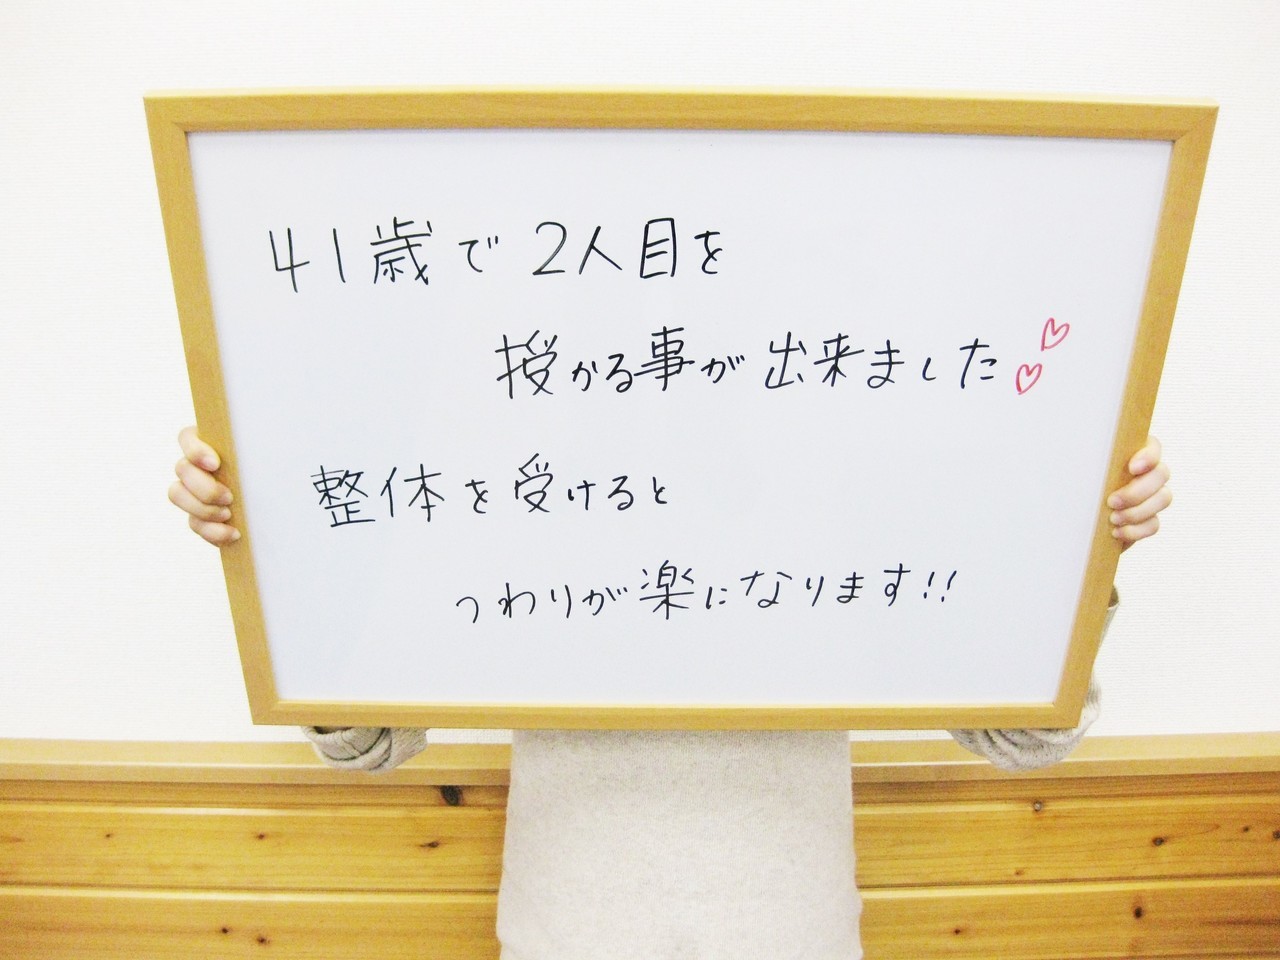 41歳で2人目を
授かる事が出来ました♡♡
整体を受けると
つわりが楽になります!!